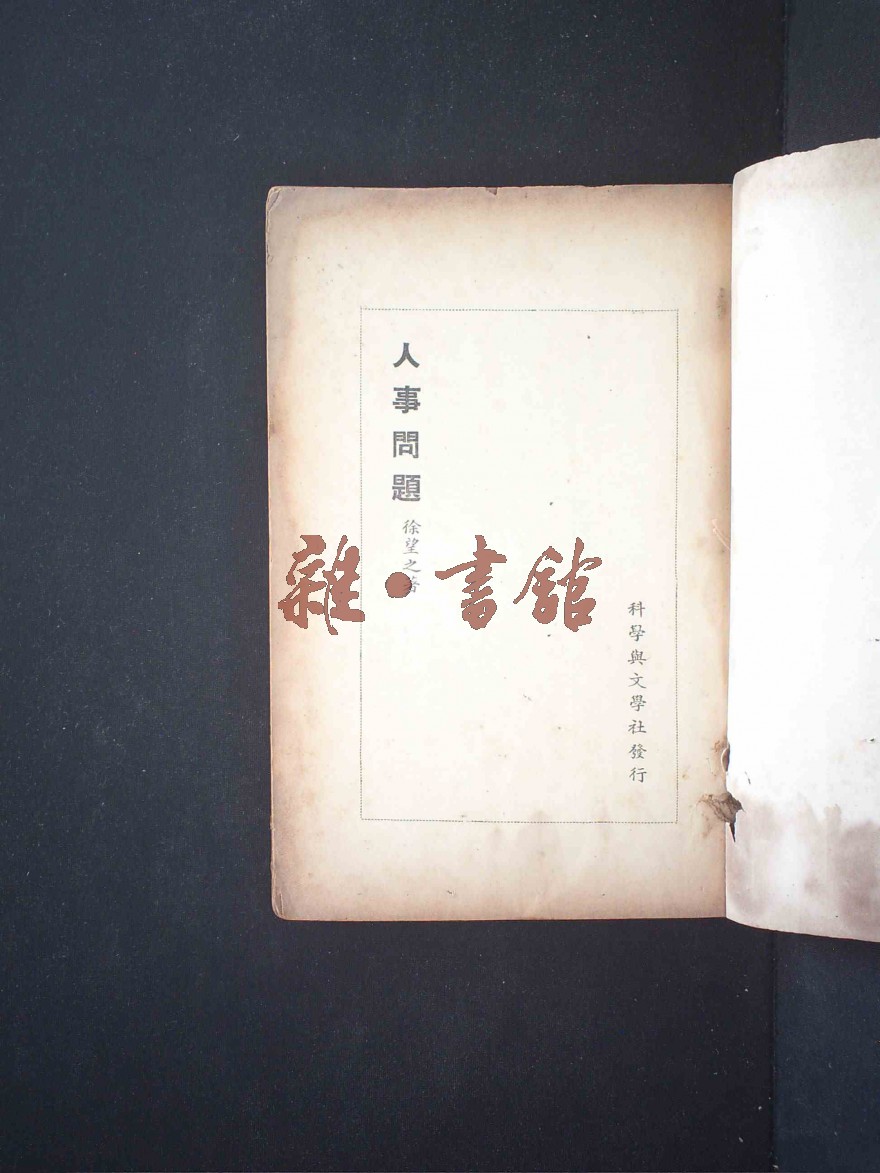 人事問題
徐望之著
科學與文學社發行
雜·書館